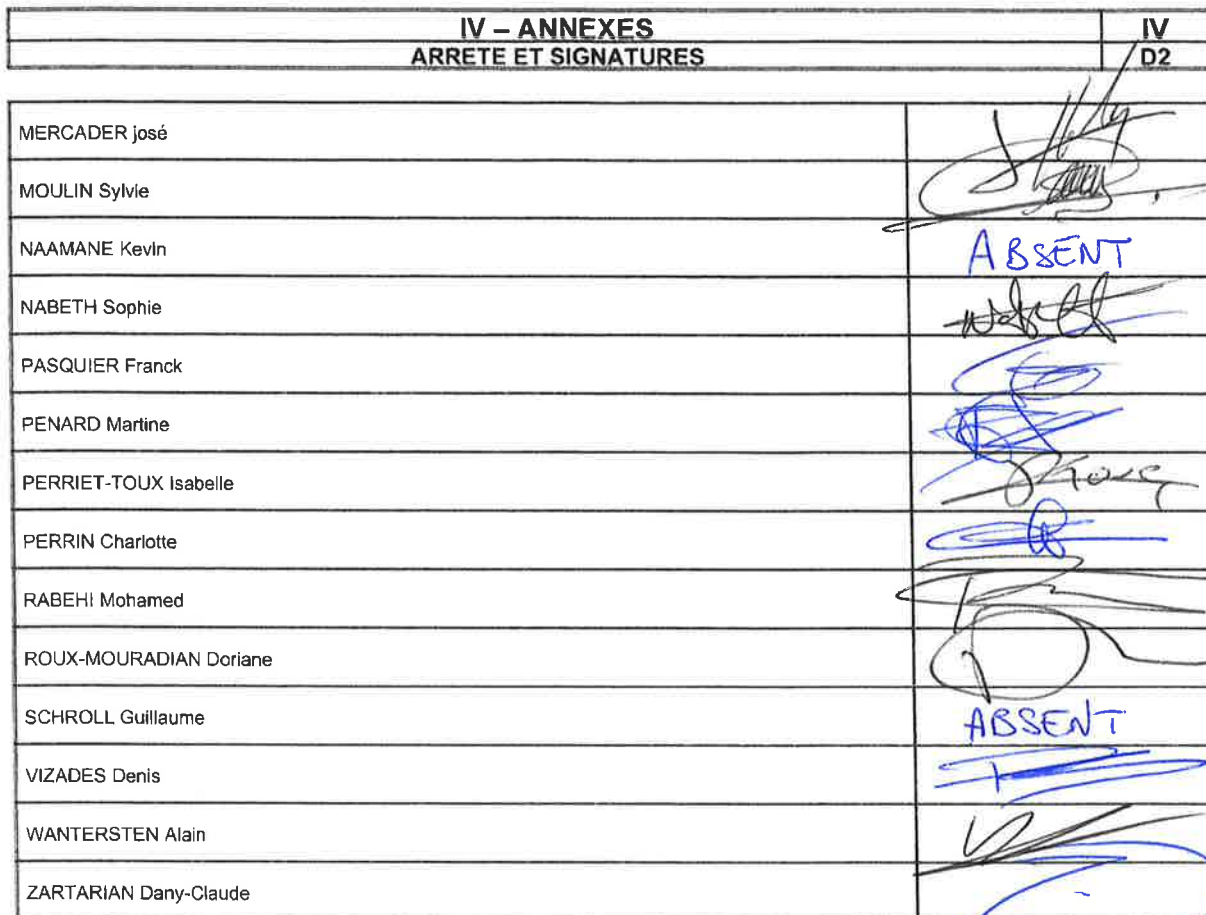 IV – ANNEXES IV
ARRETE ET SIGNATURES D2
MERCADER josé
MOULIN Sylvie
NAAMANE Kevin ABSENT
NABETH Sophie
PASQUIER Franck
PENARD Martine
PERRIET-TOUX Isabelle
PERRIN Charlotte
RABEHI Mohamed
ROUX-MOURADIAN Doriane
SCHROLL Guillaume ABSENT
VIZADES Denis
WANTERSTEN Alain
ZARTARIAN Dany-Claude